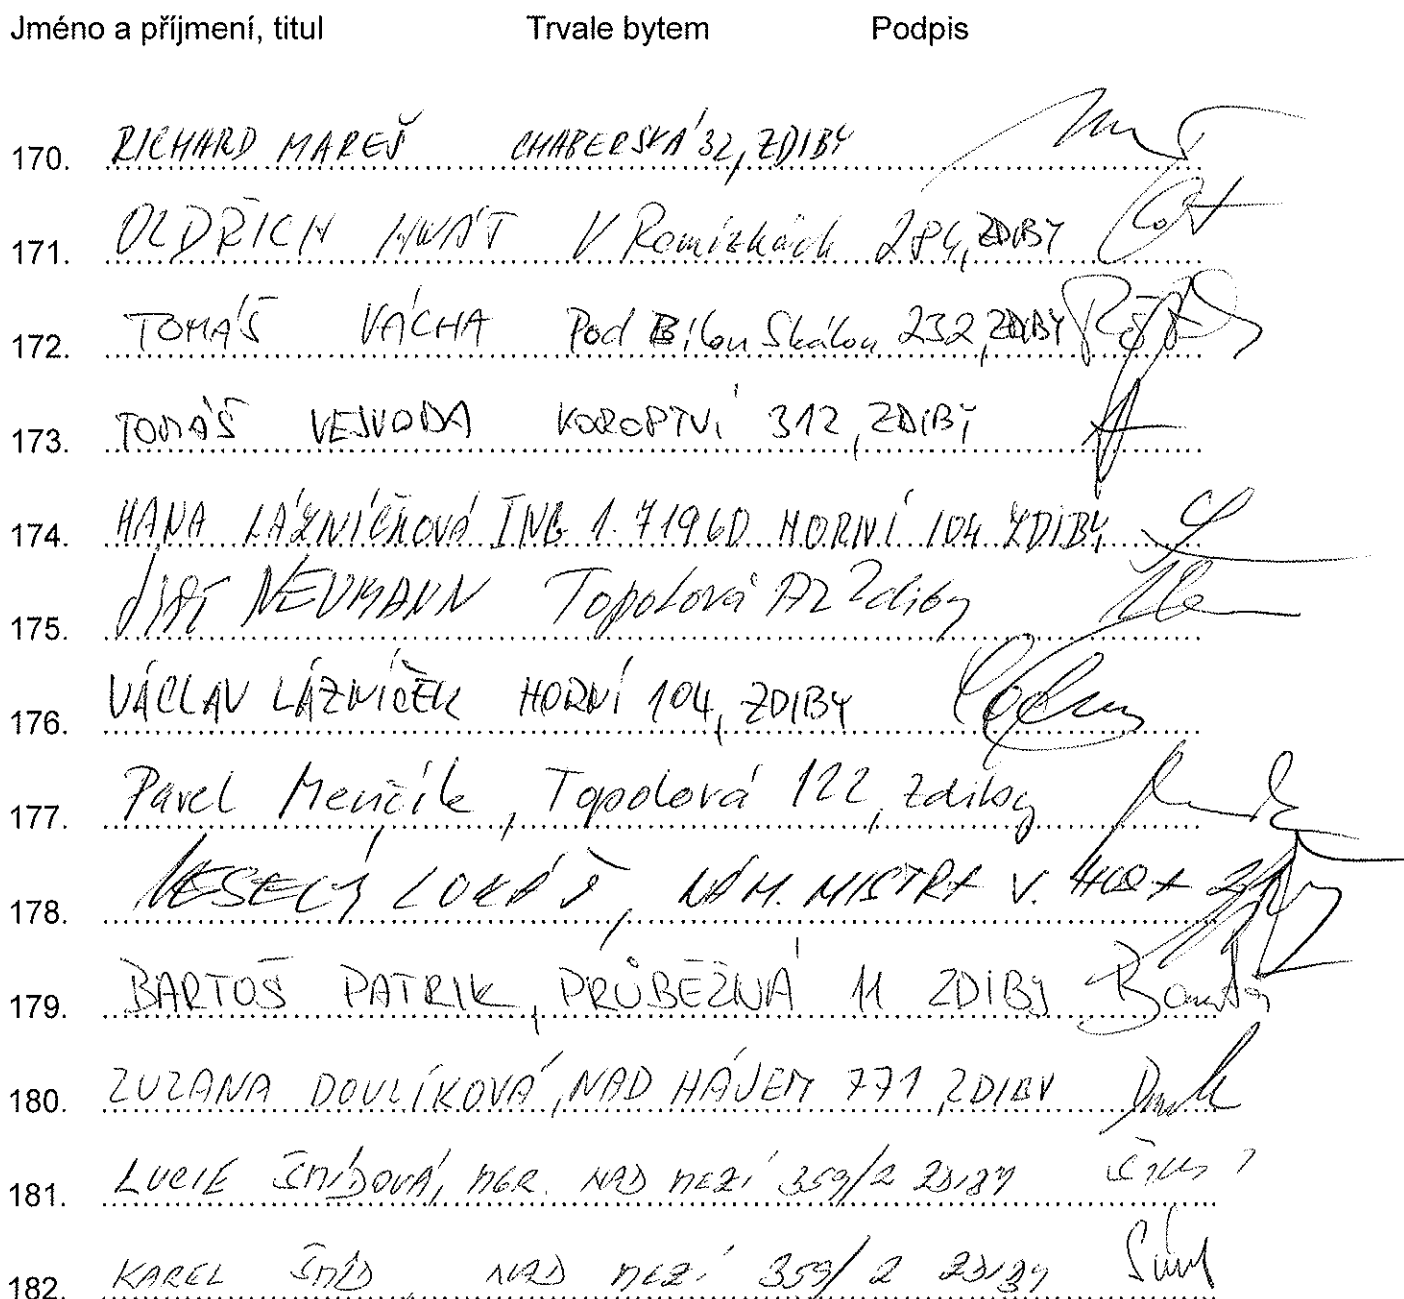 Jméno a příjmení, titul Trvale bytem Podpis
170. RICHARD MAREŠ CHABERSKÁ 32, ZDIBY
171. OLDŘICH V Remízkách 284, ZDIBY
172. TOMÁŠ VÁCHA Pod Bílou Skálou 232, ZDIBY
173. TOMÁŠ VEJVODA KOROPTVÍ 312, ZDIBY
174. HANA LÁZNIČKOVÁ ING 1. 7 1960 HORNÍ 104 ZDIBY
175. JIŘÍ NEUMANN Topolová Zdiby
176. VÁCLAV LÁZNIČEK HORNÍ 104, ZDIBY
177. Pavel Menčík, Topolová 122, Zdiby
178. VESELÝ LUKÁŠ, NÁM. MISTRA V.
179. BARTOŠ PATRIK, PRŮBĚŽNÁ 11 ZDIBY
180. ZUZANA DOULÍKOVÁ, NAD HÁJEM 771, ZDIBY
181. LUCIE ŠMÍDOVÁ, MGR. NAD MEZÍ 359/2 ZDIBY
182. KAREL ŠMÍD NAD MEZÍ 359/2 ZDIBY